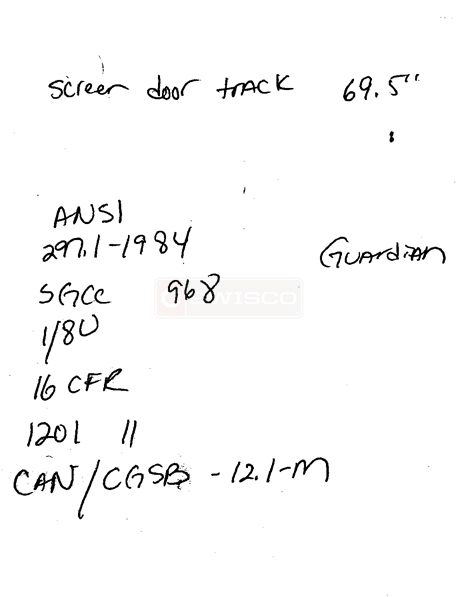 screen door track 69.5"
ANSI
297.1-1984
Guardian
SGCC 968
SWISCO
1/8U
16 CFR
1201 11
CAN/CGSB -12.1-M